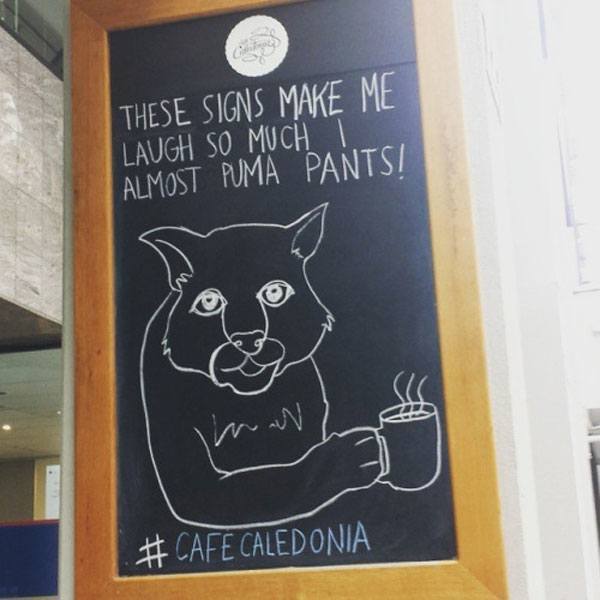 THESE SIGNS MAKE ME
LAUGH SO MUCH I
ALMOST PUMA PANTS!
# CAFE CALEDONIA